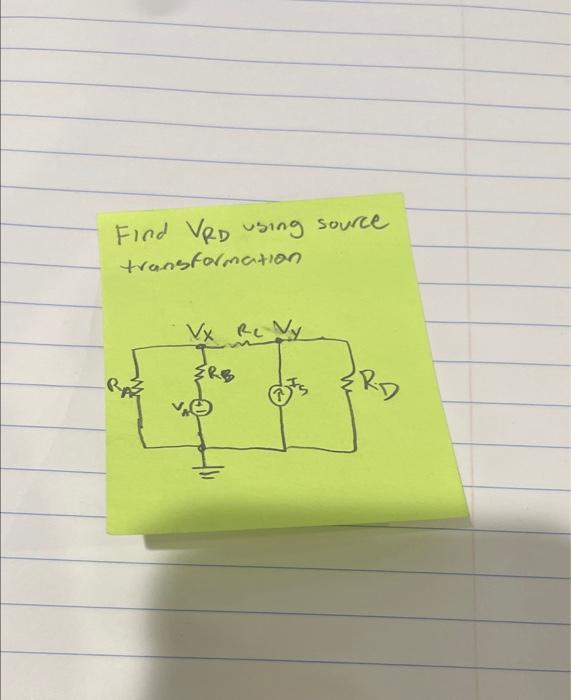 Find VRD using source
transformation
Vx Rc Vy
RA
RB
VA
Is
RD